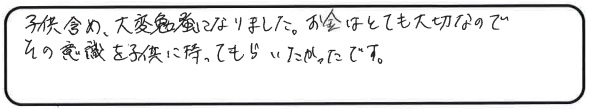 子供含め、大変勉強になりました。お金はとても大切なので
その意識を子供に持ってもらいたかったです。